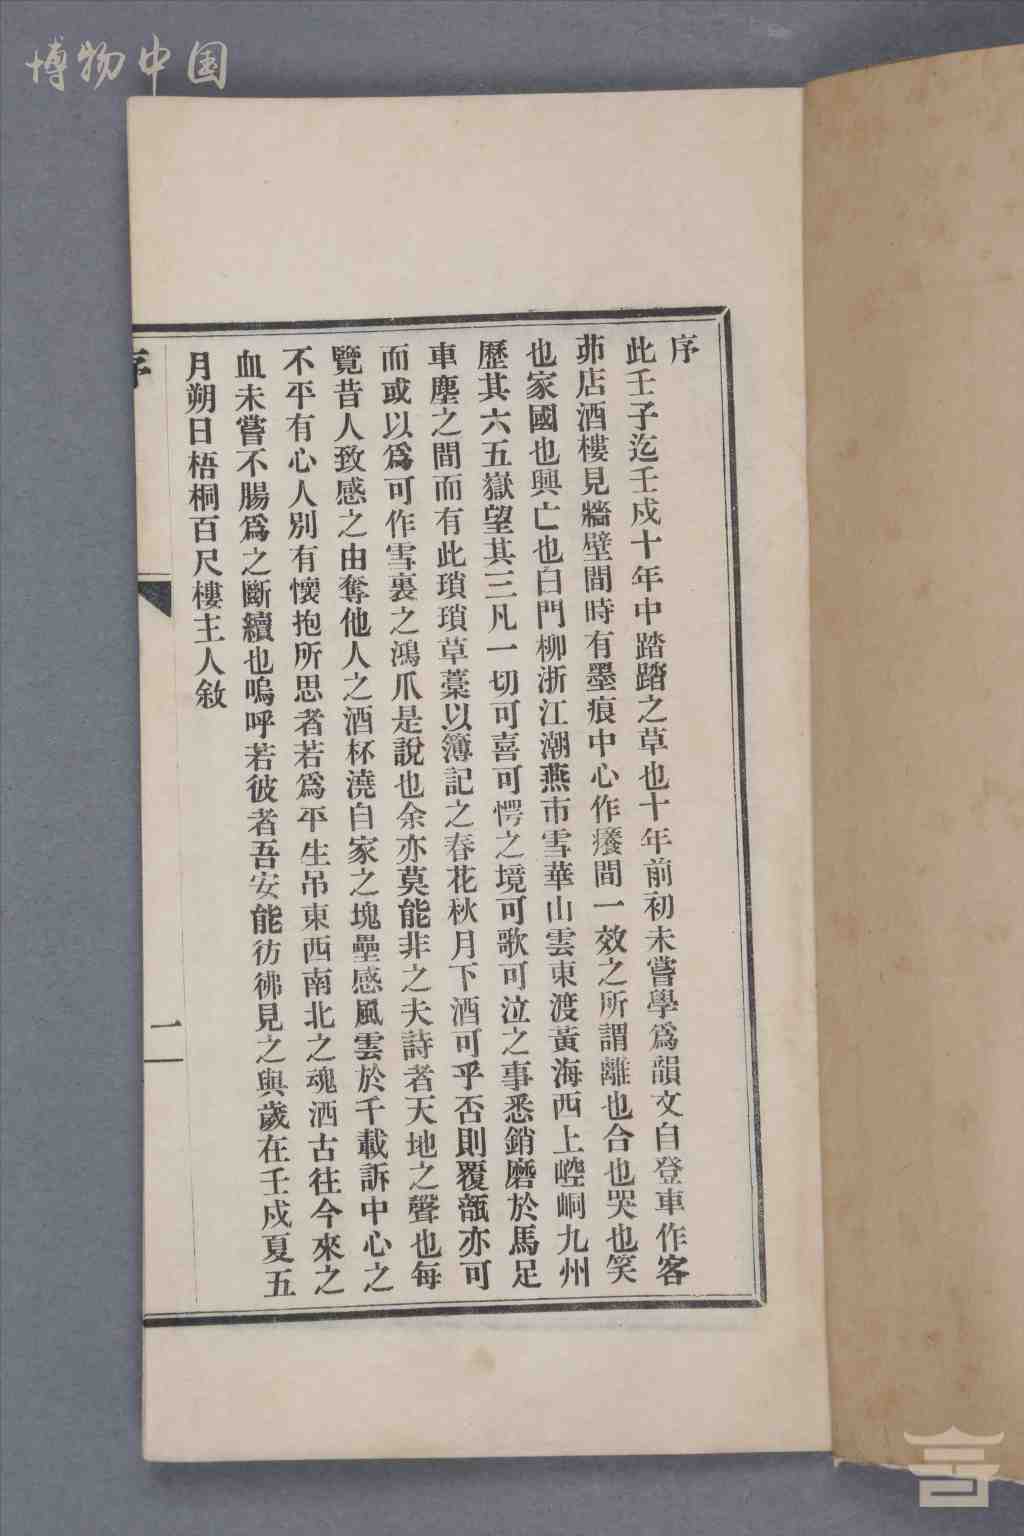 博物中国
序
此壬子迄壬戍十年中踏踏之草也十年前初未嘗學爲韻文自登車作客
茆店酒樓見牆壁間時有墨痕中心作癢間一效之所謂離也合也哭也笑
也家國也興亡也白門柳浙江潮燕市雪華山雲東渡黃海西上崆峒九州
歷其六五嶽望其三凡一切可喜可愕之境可歌可泣之事悉銷磨於馬足
車塵之間而有此瑣瑣草藁以簿記之春花秋月下酒可乎否則覆瓿亦可
而或以爲可作雪裏之鴻爪是說也余亦莫能非之夫詩者天地之聲也每
覽昔人致感之由奪他人之酒杯澆自家之塊壘感風雲於千載訴中心之
不平有心人別有懷抱所思者若爲平生吊東西南北之魂洒古往今來之
血未嘗不腸爲之斷續也嗚呼若彼者吾安能彷彿見之與歲在壬戍夏五
月朔日梧桐百尺樓主人敘
序
一